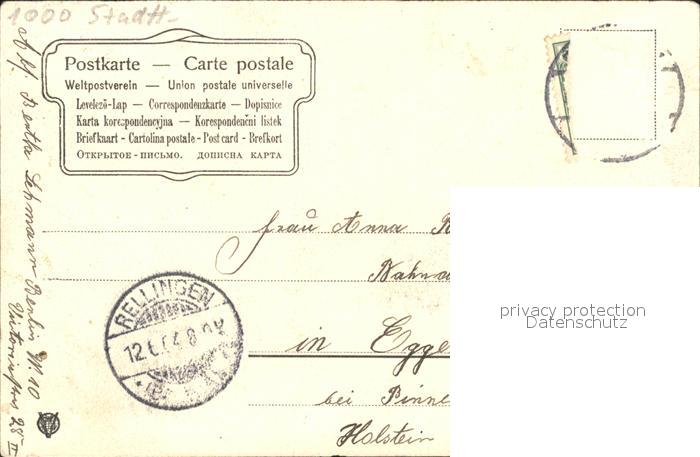 1000 Stadt-
Postkarte — Carte postale
Weltpostverein — Union postale universelle
Levelező-Lap — Correspondenzkarte — Dopisnice
Karta korespondencyjna — Korespondenční lístek
Briefkaart - Cartolina postale - Post card - Brefkort
ОТКРЫТОЕ - ПИСЬМО. ДОПИСНА КАРТА
Frau Anna
in Egge
bei Pinne
Holstein
RELLINGEN
Bertha Lehmann Berlin W. 10
28 II
privacy protection
Datenschutz